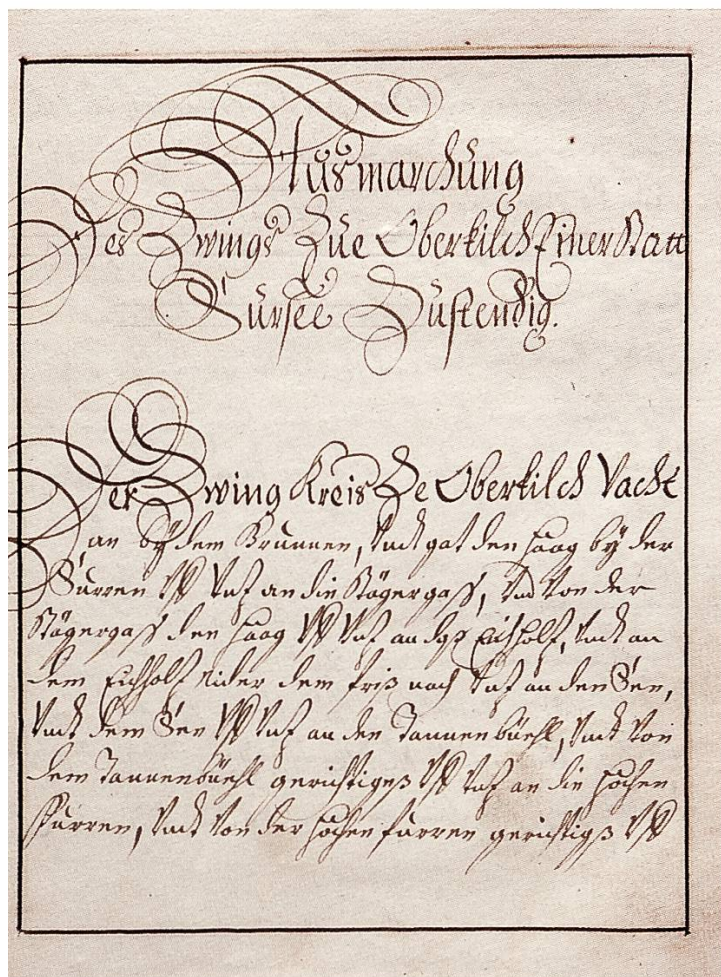 Ausmarchung
Des Zwings Zue Oberkilch Einer Statt
Sursee Zustendig.
Der Zwing Kreis Ze Oberkilch Vacht
an bÿ dem Brunnen, Vndt gat den Haag bÿ der
Surren Vff Vntz an die Stägergass, Vnd Von der
Stägergass den Haag Vff Vntz an dz Eichholtz, Vndt an
dem Eichholtz nider dem friß nach Vntz an den See,
Vndt dem See Vff Vntz an den Tannenbüehl, Vndt Von
dem Tannenbüehl gerichtigß Vff Vntz an die Hochen
furren, Vndt Von der Hochen furren gerichtigß Vff